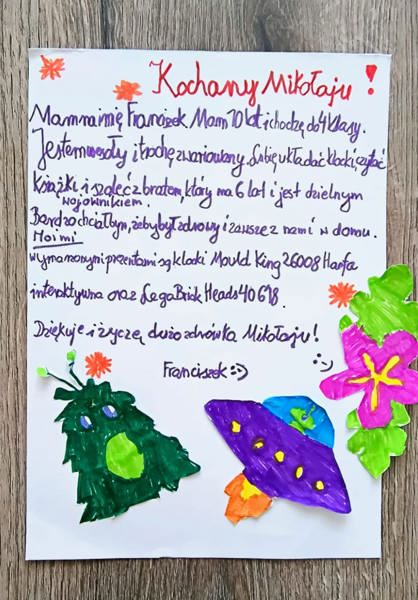 Kochany Mikołaju!
Mam na imię Franciszek. Mam 10 lat i chodzę do 4 klasy.
Jestem wesoły i trochę zwariowany. Lubię układać klocki, czytać
książki i szaleć z bratem, który ma 6 lat i jest dzielnym
wojownikiem.
Bardzo chciałbym, żeby był zdrowy i zawsze z nami w domu.
Moimi
wymarzonymi prezentami są klocki Mould King 26008 Harfa
interaktywna oraz Lego Brick Heads 40618.
Dziękuje i życzę dużo zdrówka Mikołaju!
Franciszek :)
:)